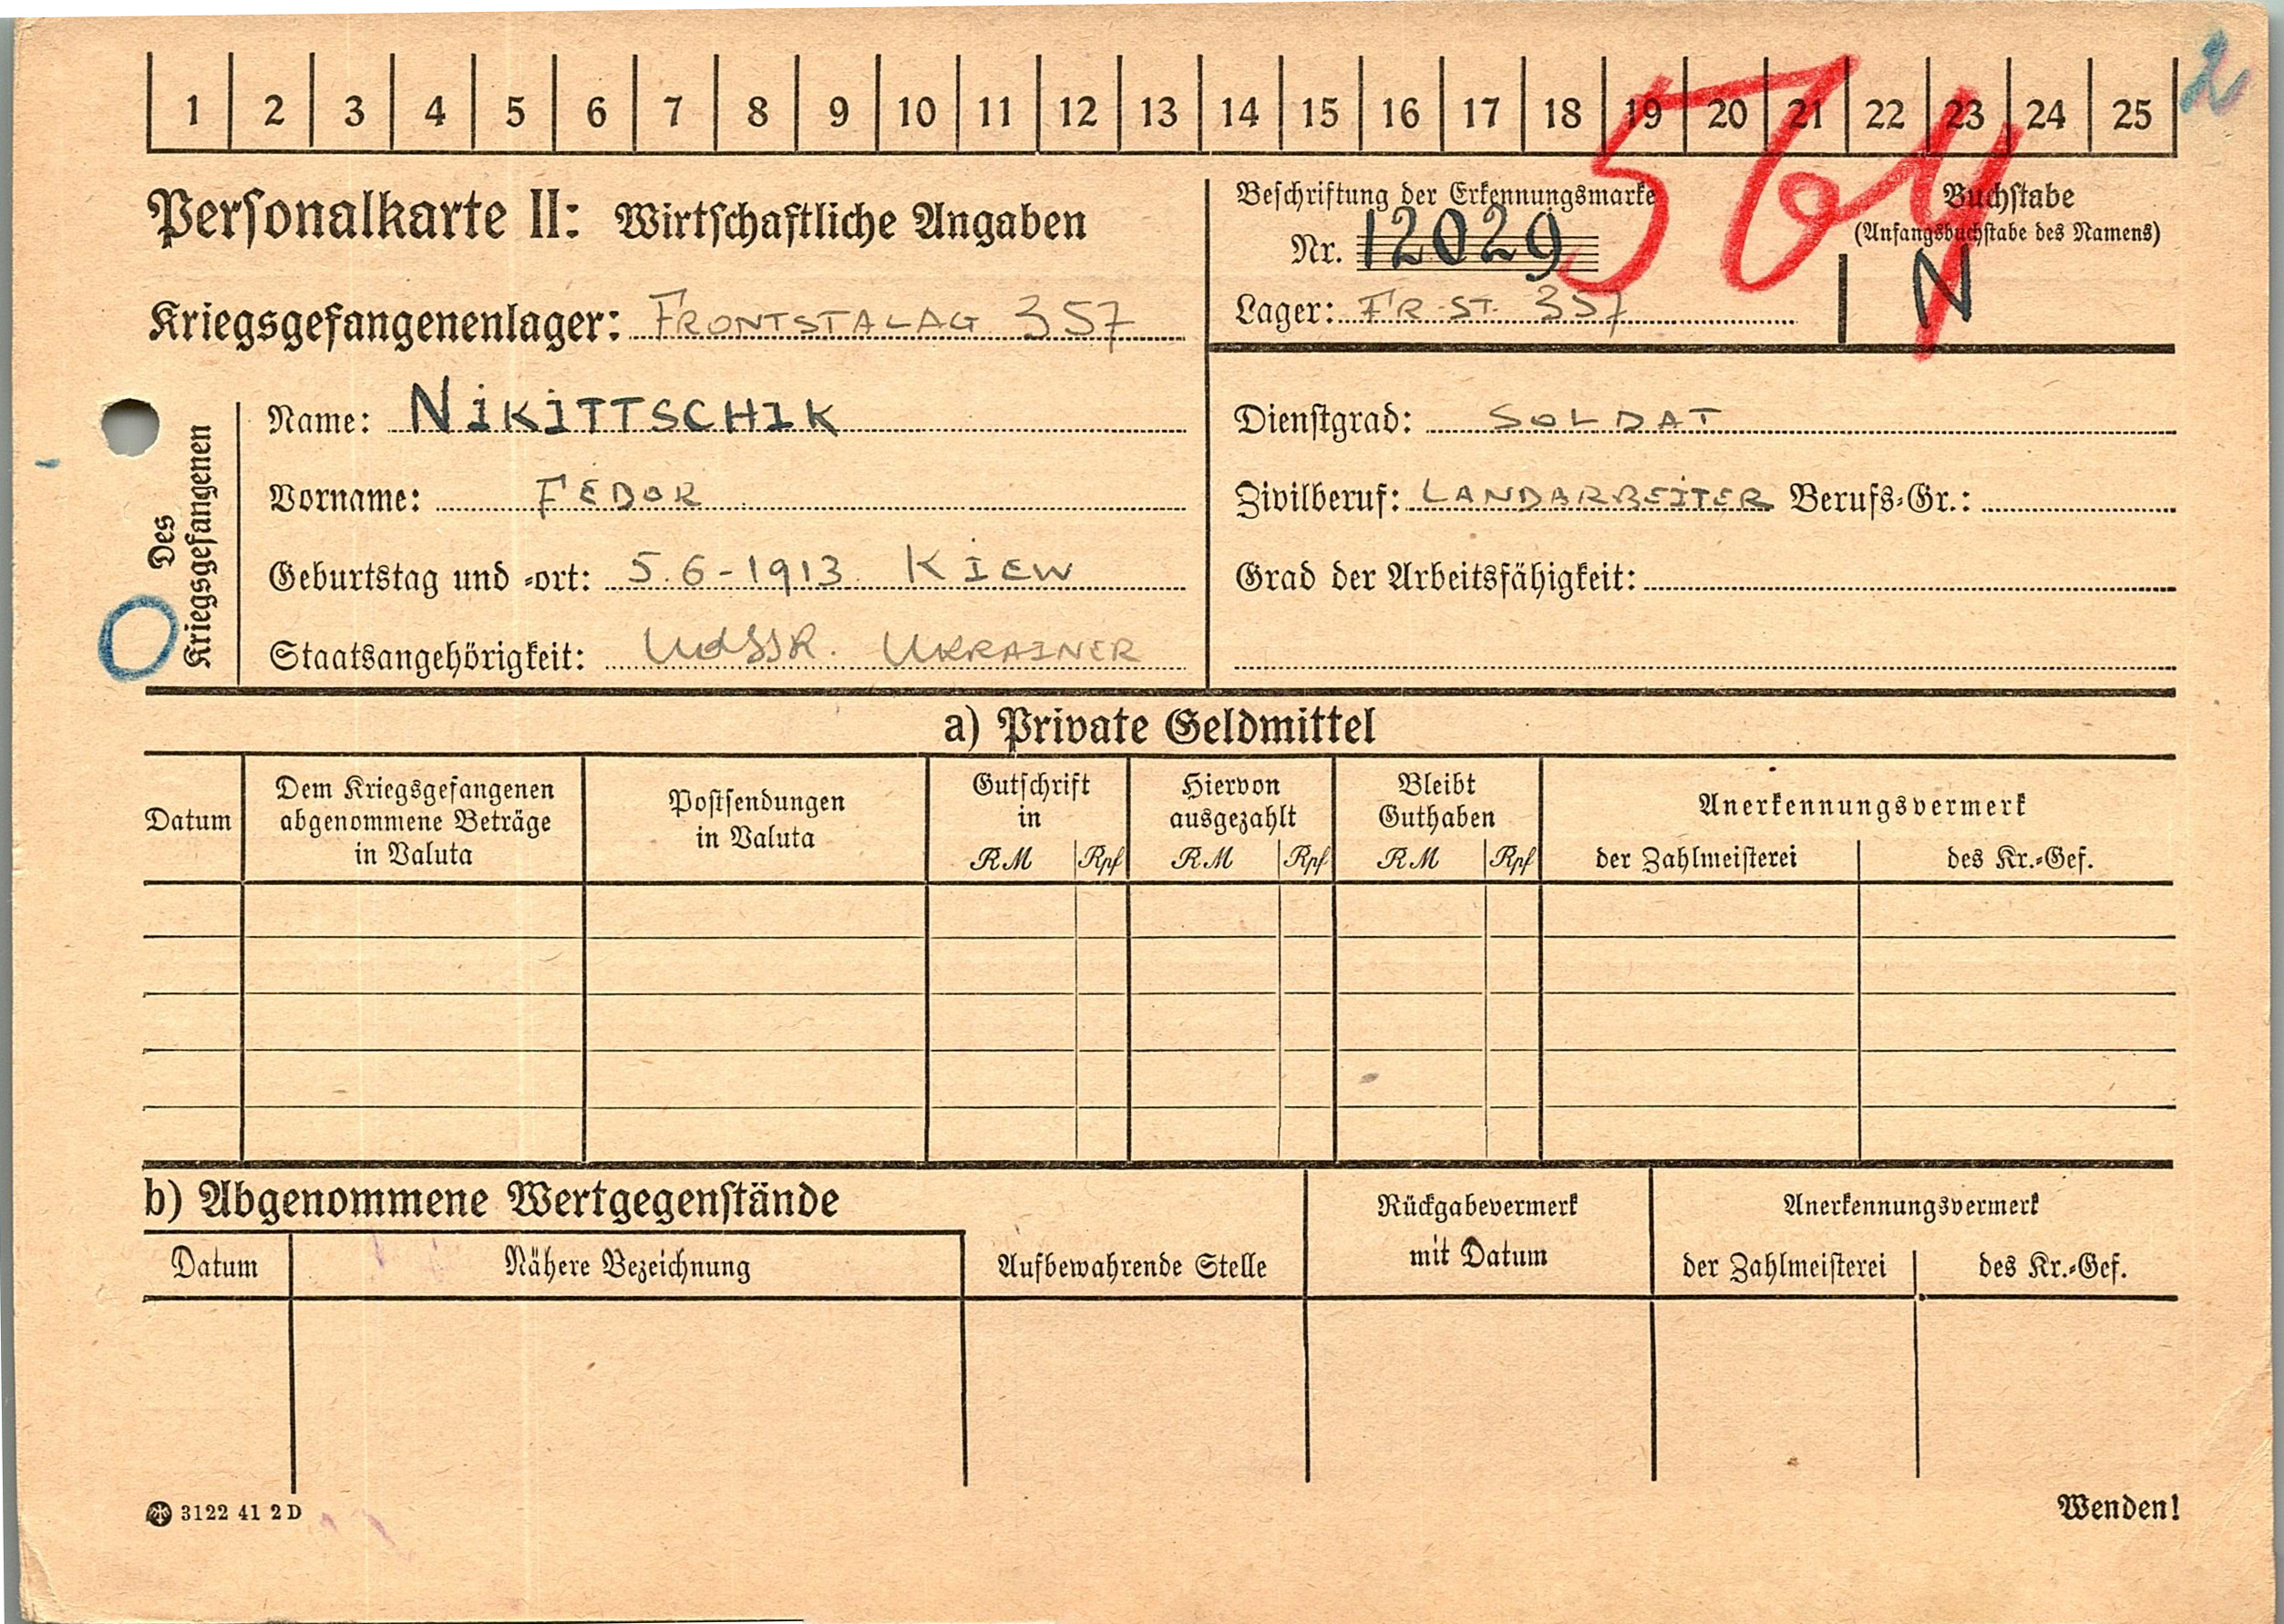 2
1 2 3 4 5 6 7 8 9 10 11 12 13 14 15 16 17 18 19 20 21 22 23 24 25
Personalkarte II: Wirtschaftliche Angaben
Kriegsgefangenenlager: FRONTSTALAG 357
Beschriftung der Erkennungsmarke
Nr. 12029
Lager: FR-ST. 357
Buchstabe
(Anfangsbuchstabe des Namens)
N
Des Kriegsgefangenen
Name: NIKITTSCHIK
Vorname: FEDOR
Geburtstag und -ort: 5.6-1913 KIEW
Staatsangehörigkeit: UdSSR. UKRAINER
Dienstgrad: SOLDAT
Zivilberuf: LANDARBEITER Berufs-Gr.:
Grad der Arbeitsfähigkeit:
a) Private Geldmittel
Datum
Dem Kriegsgefangenen
abgenommene Beträge
in Valuta
Postsendungen
in Valuta
Gutschrift
in
RM Rpf
Hiervon
ausgezahlt
RM Rpf
Bleibt
Guthaben
RM Rpf
Anerkennungsvermerk
der Zahlmeisterei des Kr.-Gef.
b) Abgenommene Wertgegenstände
Datum Nähere Bezeichnung
Aufbewahrende Stelle
Rückgabevermerk
mit Datum
Anerkennungsvermerk
der Zahlmeisterei des Kr.-Gef.
3122 41 2 D
Wenden!